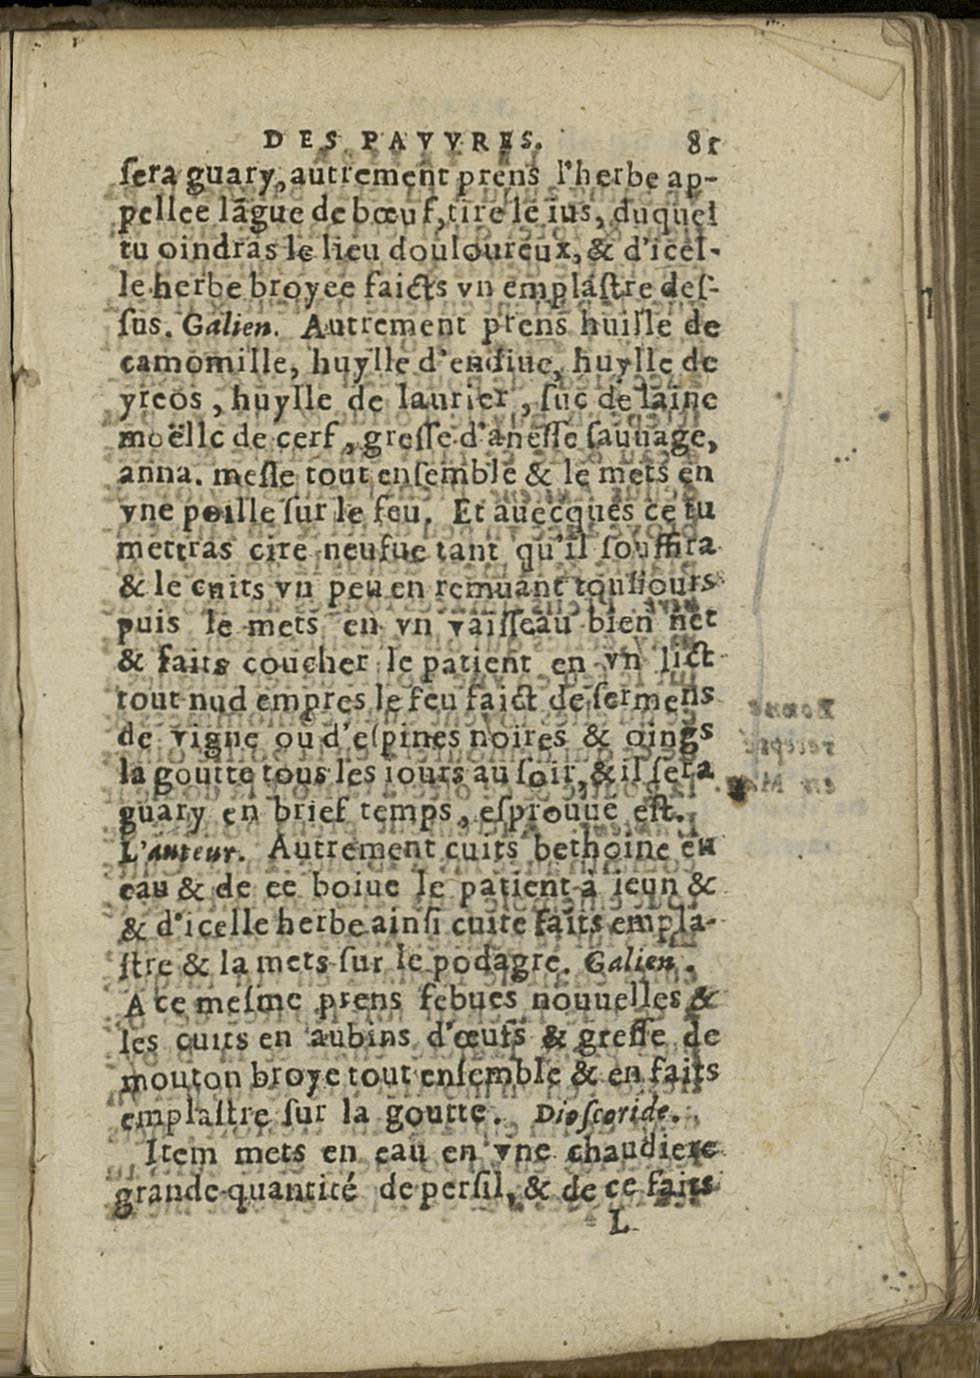 DES PAVVRES. 81
ſera guary, autrement prens l'herbe ap-
pellee lãgue de bœuf, tire le ius, duquel
tu oindras le lieu douloureux, & d'icel-
le herbe broyee faicts vn emplaſtre deſ-
ſus. Galien. Autrement prens huille de
camomille, huylle d'endiue, huylle de
yreos, huylle de laurier, ſuc de laine
moëlle de cerf, greſſe d'aneſſe ſauuage,
anna. meſle tout enſemble & le mets en
vne poille ſur le feu. Et auecques ce tu
mettras cire neufue tant qu'il ſouffira
& le cuits vn peu en remuant touſiours
puis le mets en vn vaiſſeau bien net
& faits coucher le patient en vn lict
tout nud empres le feu faict de ſermens
de vigne ou d'eſpines noires & oings
la goutte tous les iours au ſoir, & il ſera
guary en brief temps, eſprouue eſt.
L'auteur. Autrement cuits bethoine en
eau & de ce boiue le patient à ieun &
& d'icelle herbe ainſi cuite faits empla-
ſtre & la mets ſur le podagre. Galien.
A ce meſme prens febues nouuelles &
les cuits en aubins d'œufs & greſſe de
mouton broye tout enſemble & en faits
emplaſtre ſur la goutte. Dioſcoride.
Item mets en eau en vne chaudiere
grande quantité de perſil, & de ce faits
L